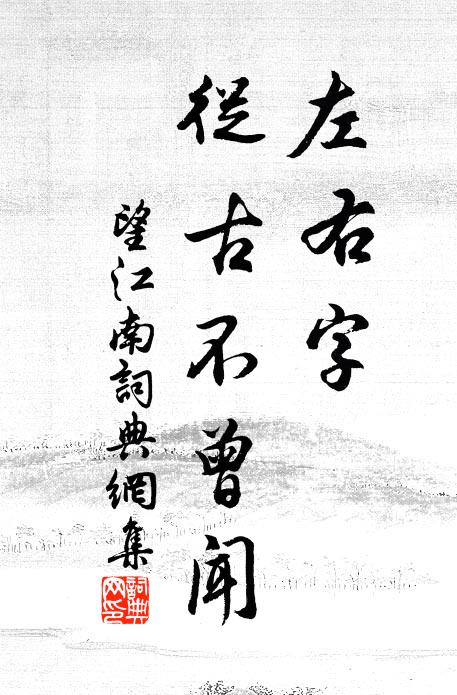 左右字
從古不曾聞
望江南詞典網集
詞典網印